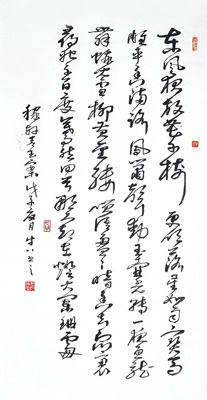 东风夜放花千树更吹落星如雨宝马
雕车香满路风箫声动玉壶光转一夜鱼龙
舞蛾儿雪柳黄金缕笑语盈盈暗香去众里
寻他千百度蓦然回首那人却在灯火阑珊处
稼轩青玉案戊子夏月